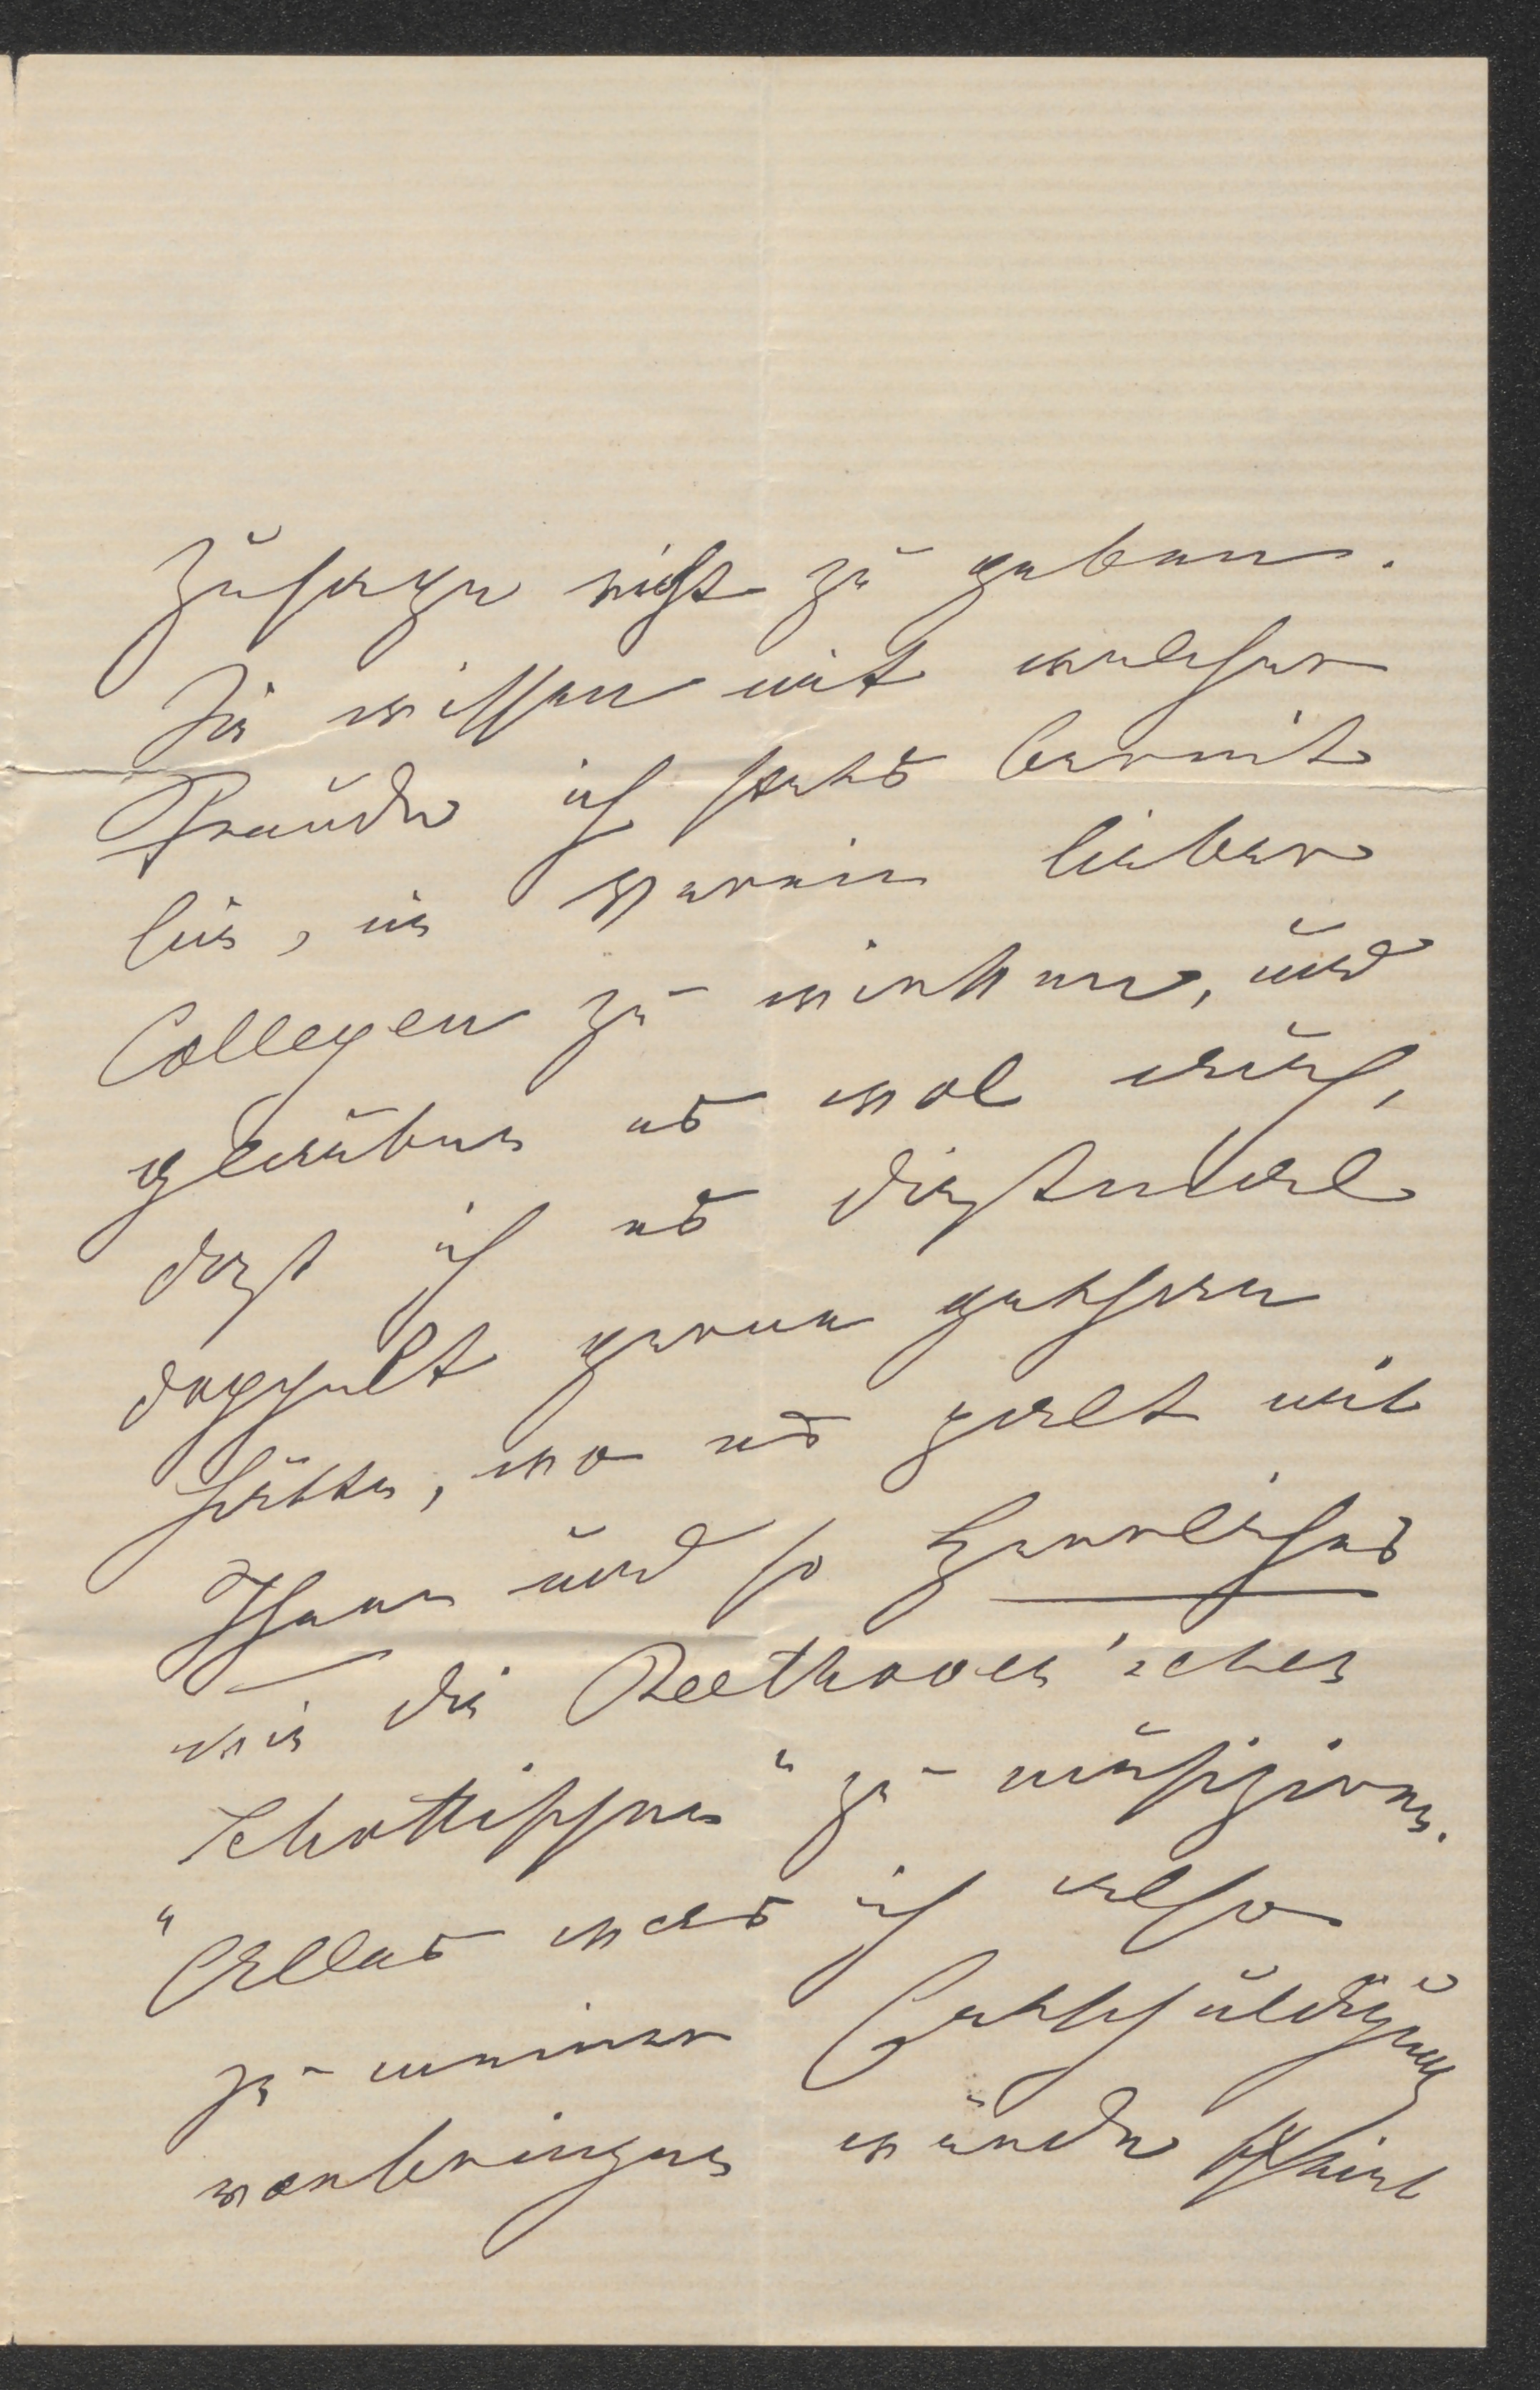 Zusage nicht zu geben.
Sie wissen mit welcher
Freude ich stets bereit
bin, im Verein lieber
Collegen zu wirken, und
glauben es wol auch,
daß ich es diesmal
doppelt gerne gethan
hätte, wo es galt mit
Ihnen und so Herrliches
wie die Beethoven'schen
Schottischen" zu musiziren.
"Alles was ich also
zu meiner Entschuldigung
vorbringen würde scheint